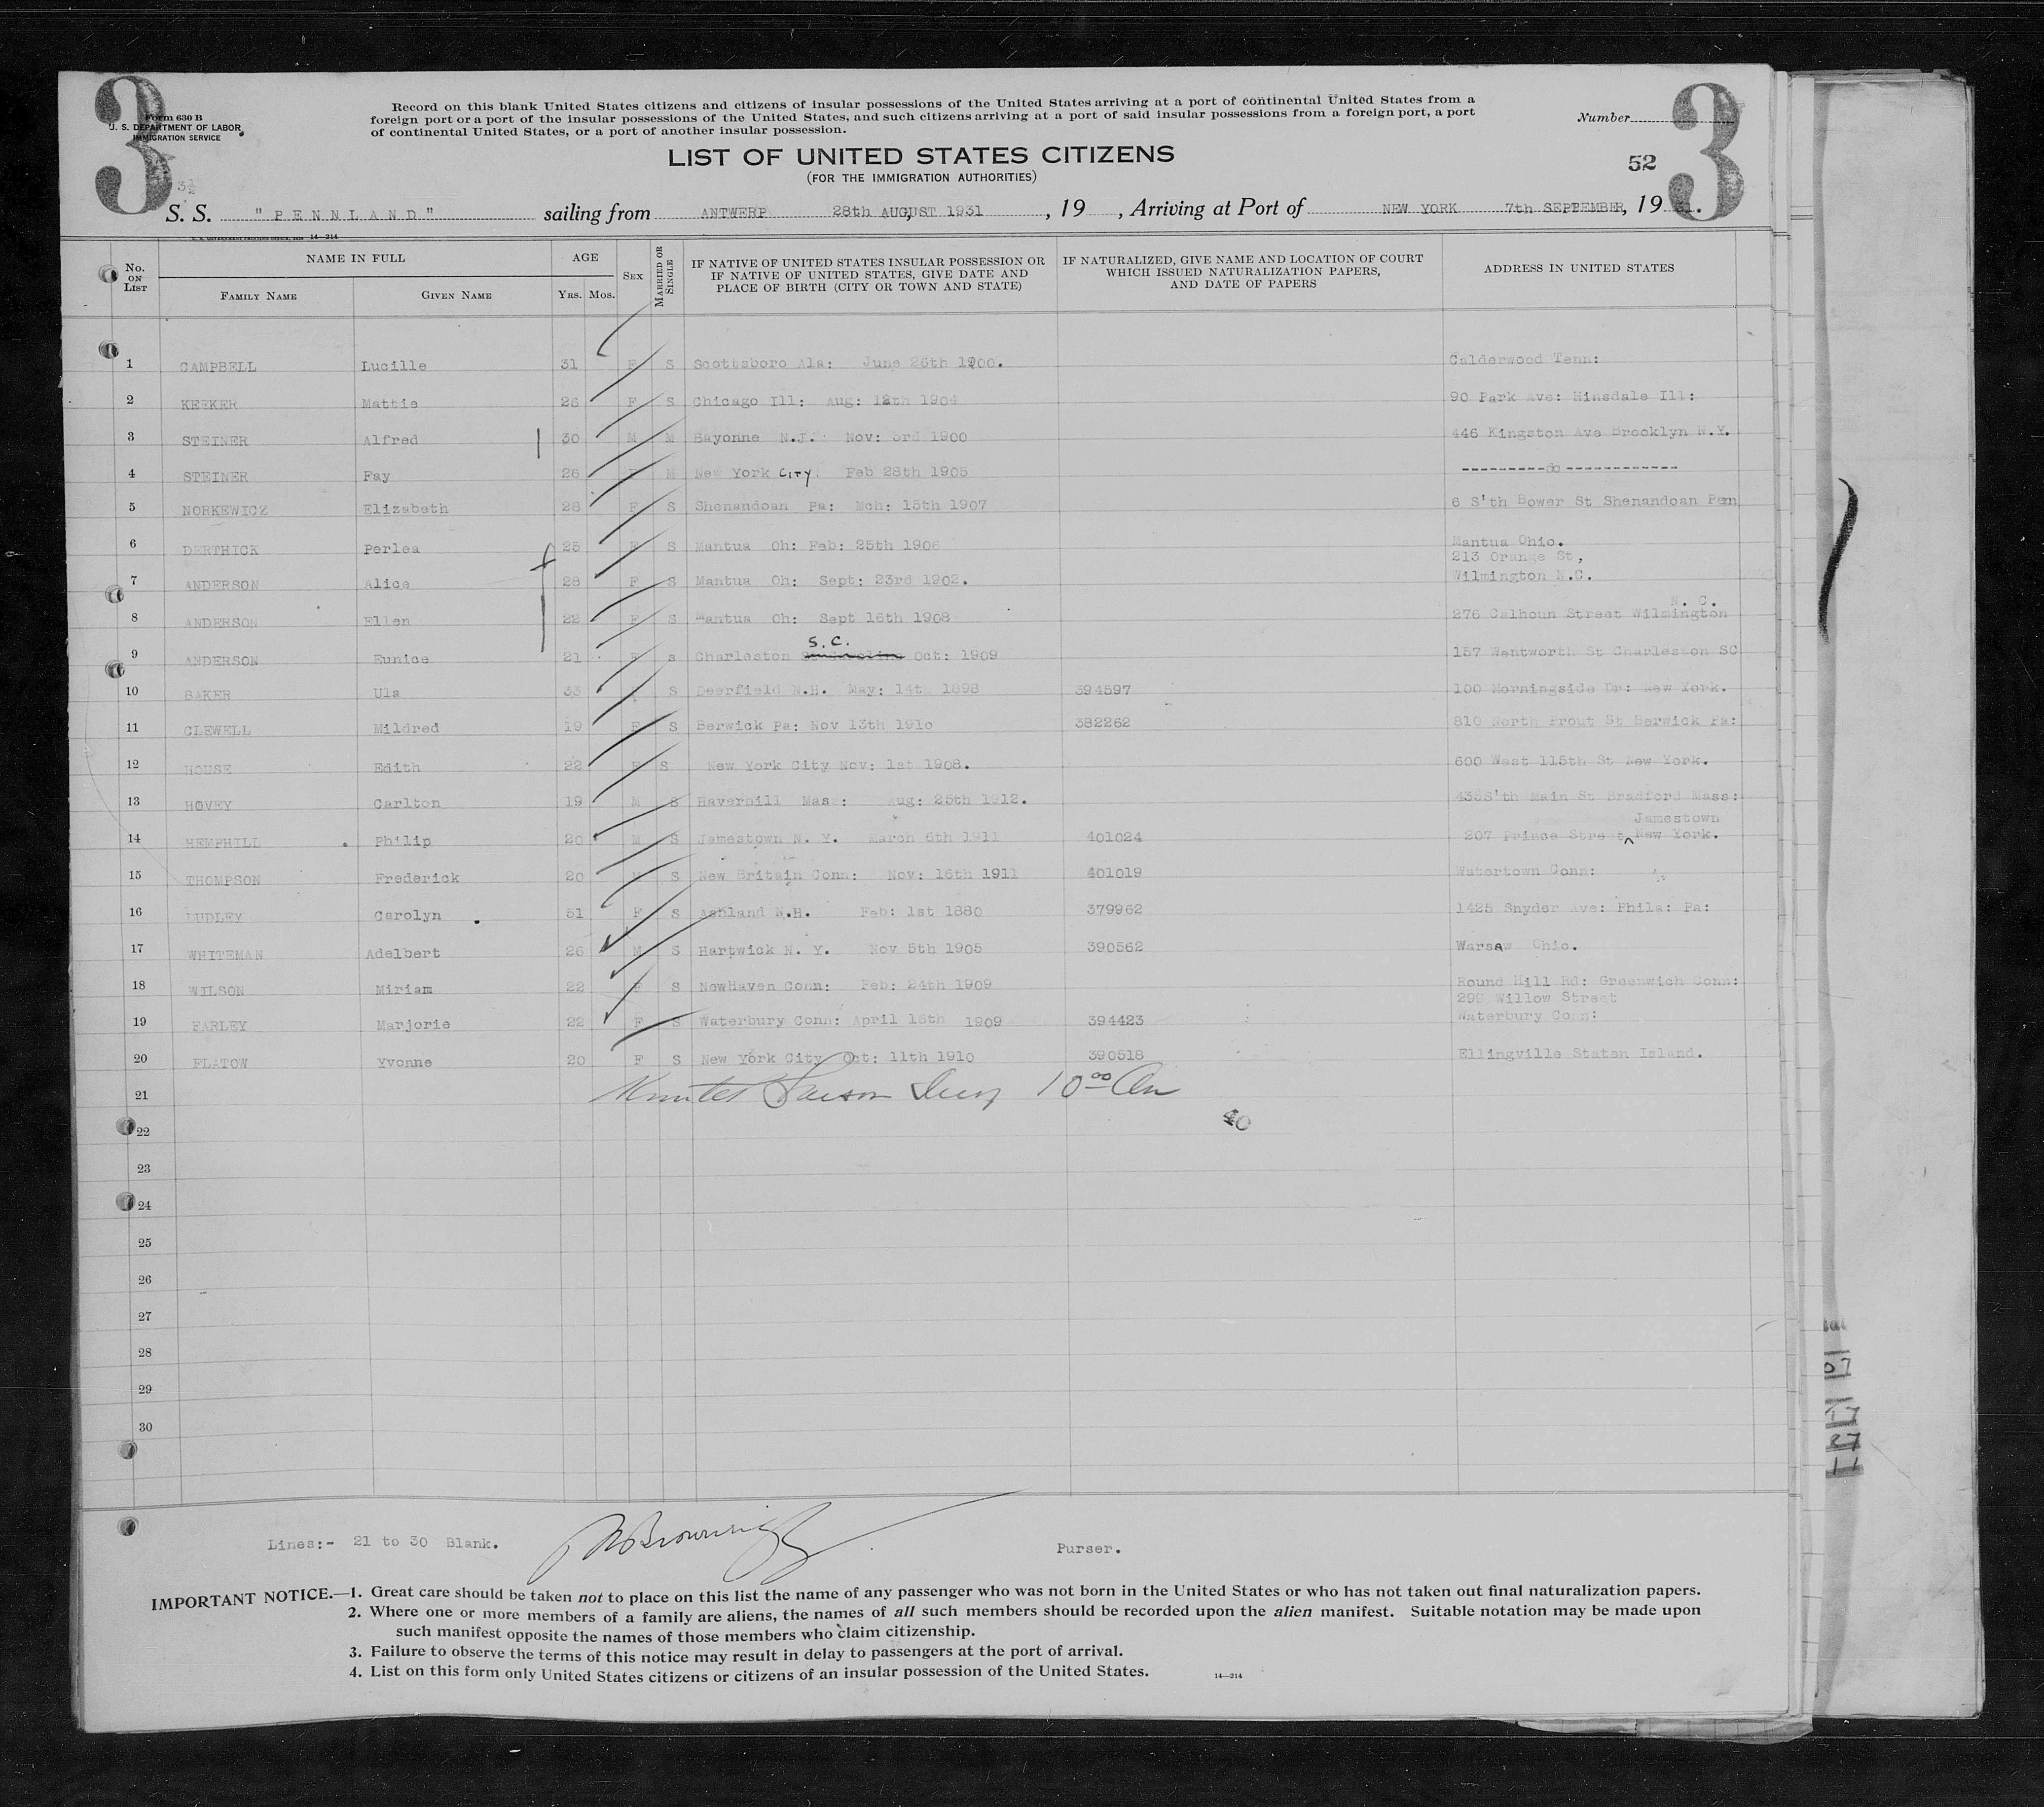 3
3
Form 630 B
U. S. DEPARTMENT OF LABOR
IMMIGRATION SERVICE
Record on this blank United States citizens and citizens of insular possessions of the United States arriving at a port of continental United States from a
foreign port or a port of the insular possessions of the United States, and such citizens arriving at a port of said insular possessions from a foreign port, a port
of continental United States, or a port of another insular possession.
Number
LIST OF UNITED STATES CITIZENS
(FOR THE IMMIGRATION AUTHORITIES)
52
S. S. "PENNLAND" sailing from ANTWERP 28th AUGUST 1931, 19 , Arriving at Port of NEW YORK 7th SEPTEMBER, 19 31.
14—214
No. ON LIST
NAME IN FULL
FAMILY NAME GIVEN NAME
AGE
YRS. MOS.
SEX
MARRIED OR SINGLE
IF NATIVE OF UNITED STATES INSULAR POSSESSION OR
IF NATIVE OF UNITED STATES, GIVE DATE AND
PLACE OF BIRTH (CITY OR TOWN AND STATE)
IF NATURALIZED, GIVE NAME AND LOCATION OF COURT
WHICH ISSUED NATURALIZATION PAPERS,
AND DATE OF PAPERS
ADDRESS IN UNITED STATES
1 CAMPBELL Lucille 31 F S Scottsboro Ala: June 26th 1900. Calderwood Tenn:
2 KEEKER Mattie 26 F S Chicago Ill: Aug: 12th 1904 90 Park Ave: Hinsdale Ill:
3 STEINER Alfred 30 M M Bayonne N.J. Nov: 3rd 1900 446 Kingston Ave Brooklyn N.Y.
4 STEINER Fay 26 F M New York CITY. Feb 28th 1905 ---------do------------
5 NORKEWICZ Elizabeth 28 F S Shenandoan Pa: Mch: 15th 1907 6 S'th Bower St Shenandoan Pen
6 DERTHICK Perlea 25 F S Mantua Oh: Feb: 25th 1906 Mantua Ohio.
213 Orange St,
7 ANDERSON Alice 28 F S Mantua Oh: Sept: 23rd 1902. Wilmington N.C.
N. C.
8 ANDERSON Ellen 22 F S Mantua Oh: Sept 16th 1908 276 Calhoun Street Wilmington
S.C.
9 ANDERSON Eunice 21 F s Charleston Oct: 1909 157 Wentworth St Charleston SC
10 BAKER Ula 33 S Deerfield N.H. May: 14th 1898 394597 100 Morningside Dr: New York.
11 CLEWELL Mildred 19 F S Berwick Pa: Nov 13th 1910 382262 810 North Prout St Berwick Pa:
12 HOUSE Edith 22 F S New York City Nov: 1st 1908. 600 West 115th St New York.
13 HOVEY Carlton 19 M S Haverhill Mass: Aug: 25th 1912. 435S'th Main St Bradford Mass:
Jamestown
14 HEMPHILL Philip 20 M S Jamestown N. Y. March 6th 1911 401024 207 Prince Street New York.
15 THOMPSON Frederick 20 M S New Britain Conn: Nov: 16th 1911 401019 Watertown Conn:
16 DUDLEY Carolyn 51 F S Ashland N.H. Feb: 1st 1880 379962 1425 Snyder Ave: Phila: Pa:
17 WHITEMAN Adelbert 26 M S Hartwick N. Y. Nov 5th 1905 390562 Warsaw Ohio.
18 WILSON Miriam 22 F S NewHaven Conn: Feb: 24th 1909 Round Hill Rd: Greenwich Conn:
299 Willow Street
19 FARLEY Marjorie 22 F S Waterbury Conn: April 16th 1909 394423 Waterbury Conn:
20 FLATOW Yvonne 20 F S New York City Oct: 11th 1910 390518 Ellingville Staten Island.
21 10 00 Am
22
23
24
25
26
27
28
29
30
Lines:- 21 to 30 Blank.
Purser.
IMPORTANT NOTICE.—1. Great care should be taken not to place on this list the name of any passenger who was not born in the United States or who has not taken out final naturalization papers.
2. Where one or more members of a family are aliens, the names of all such members should be recorded upon the alien manifest. Suitable notation may be made upon
such manifest opposite the names of those members who claim citizenship.
3. Failure to observe the terms of this notice may result in delay to passengers at the port of arrival.
4. List on this form only United States citizens or citizens of an insular possession of the United States.
14—214